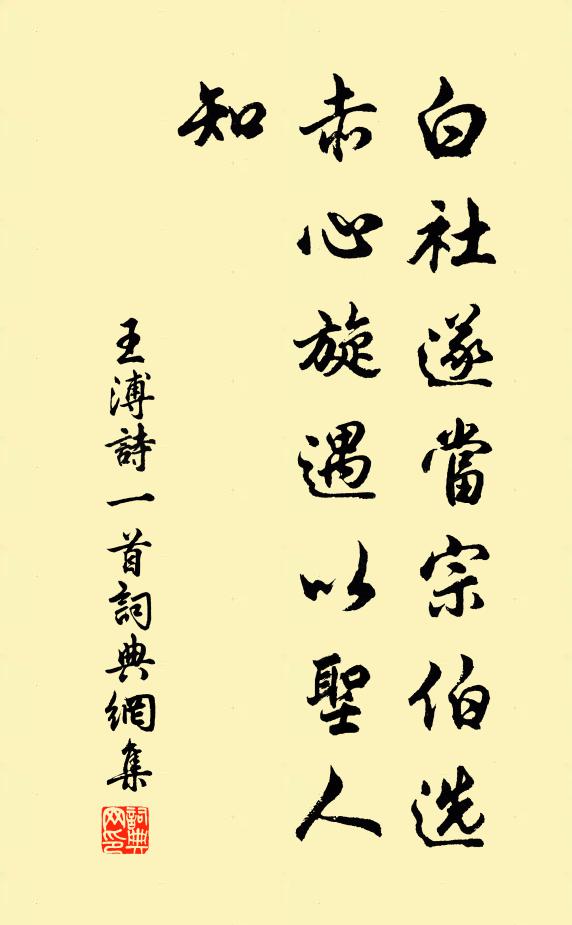 白社遂當宗伯选
赤心旋遇以聖人
知
王溥詩一首詞典網集
詞典网印